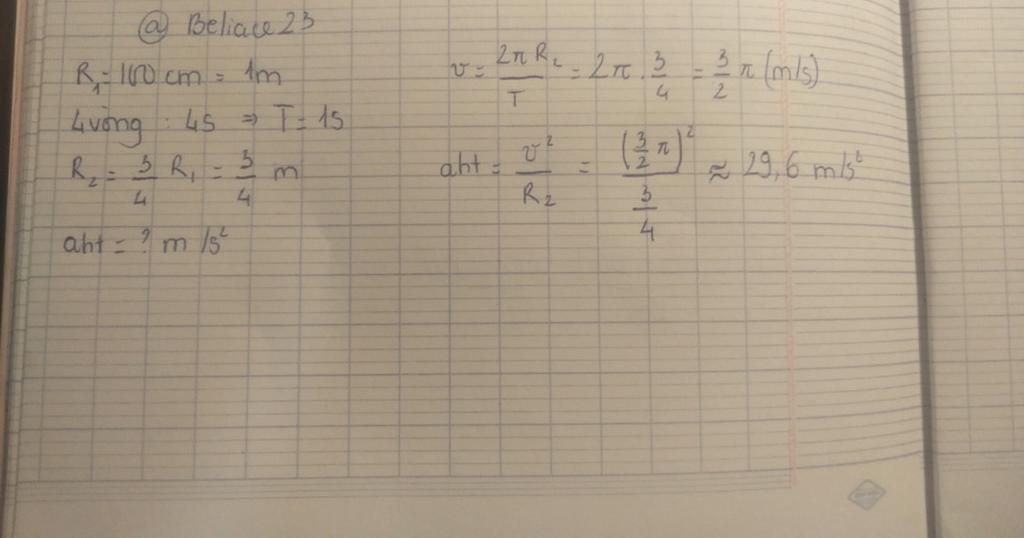 @ Beliace 23
R₁ = 100 cm = 1m
4 vòng : 4s ⇒ T = 1s
R₂ = 3/4 R₁ = 3/4 m
aht = ? m/s²
v = 2πR₂/T = 2π . 3/4 = 3/2 π (m/s)
aht = v²/R₂ = (3/2 π)²/(3/4) ≈ 29,6 m/s²